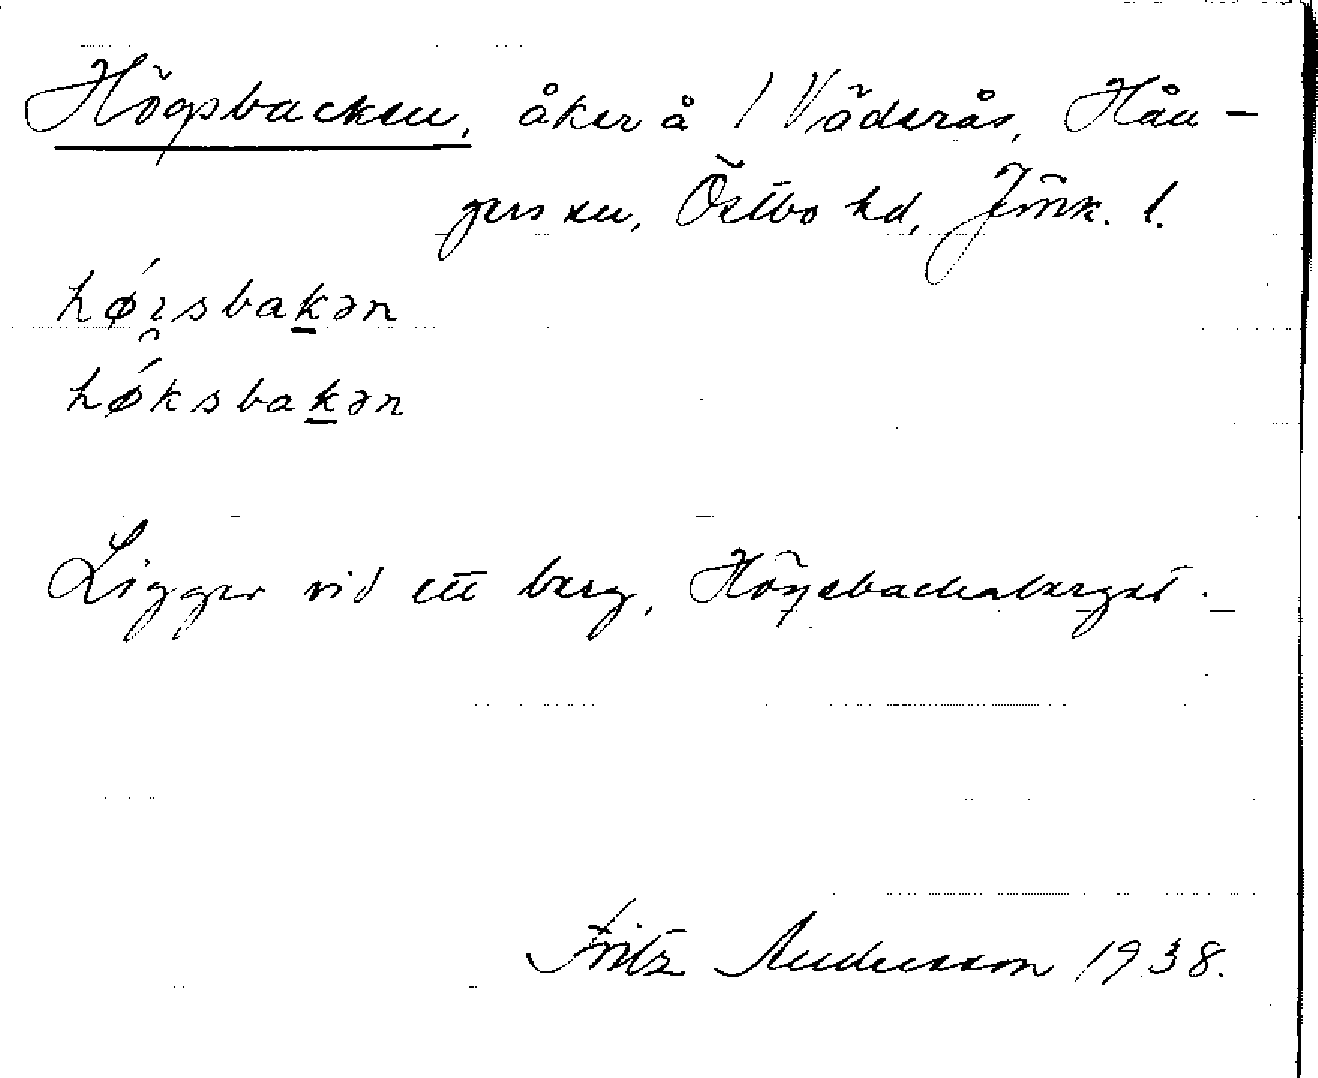 Högsbacken, åker å 1 Väderås, Hån-
gers sn, Östbo hd, Jönk. l.
hǿi̯sbakən
hǿksbakən
Ligger vid ett berg, Högsbackaberget.
Fritz Andersson 1938.